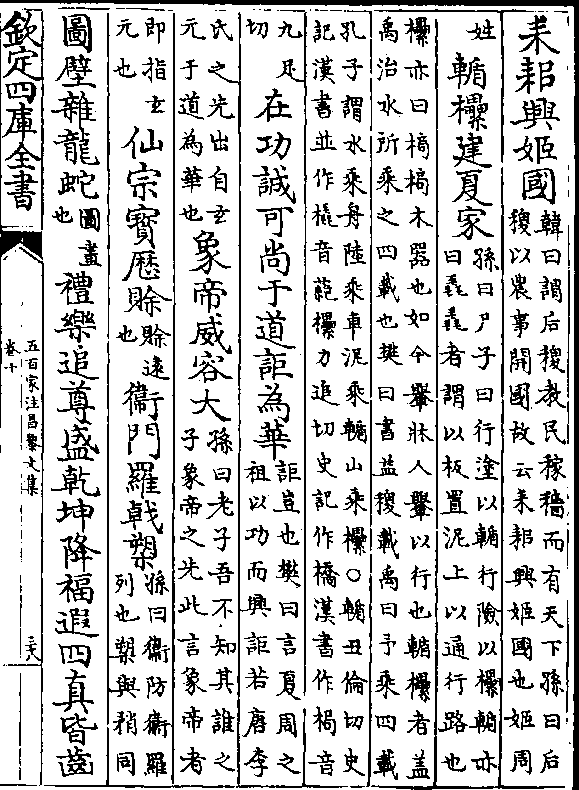 耒耜興姬國韓曰謂后稷教民稼穡而有天下孫曰后稷以農事開國故云耒耜興姬國也姬周
姓輴欙建夏家孫曰尸子曰行塗以輴行險以欙輴亦曰毳毳者謂以板置泥上以通行路也
欙亦曰梮梮木器也如今轝牀人轝以行也輴欙者蓋
禹治水所乘之四載也樊曰書益稷載禹曰予乘四載
孔子謂水乘舟陸乘車泥乘輴山乘欙○輴丑倫切史
記漢書並作橇音蕝欙力追切史記作橋漢書作梮音
九足切在功誠可尚于道詎為華詎豈也樊曰言夏周之祖以功而興詎若唐李
氏之先出自玄元于道為華也象帝威容大孫曰老子吾不知其誰之子象帝之先此言象帝者
即指玄元也仙宗寶厯賒賒遠也衞門羅戟槊孫曰衞防衞羅列也槊與矟同
圖壁雜龍蛇圖畫也禮樂追尊盛乾坤降福遐四真皆齒
欽定四庫全書
五百家注昌黎文集
卷十